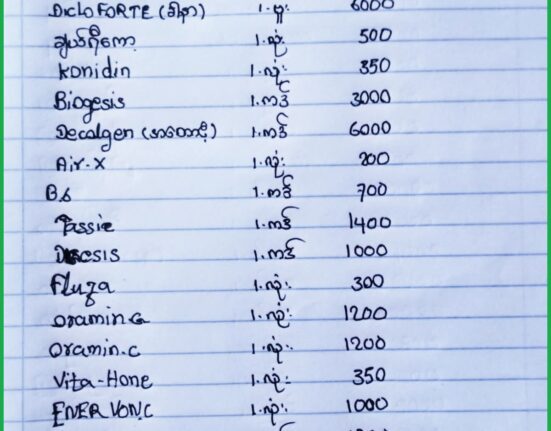 Diclo FORTE (ဒိုရာ) ၁.ဗူး 6000
၁.လုံး 500
Konidin ၁.လုံး 350
Biogesis ၁.ကဒ် 3000
Decolgen (အတောင့်) ၁.ကဒ် 6000
Air-X ၁.လုံး 200
B6 ၁.ကဒ် 700
Tassie ၁.ကဒ် 1400
၁.ကဒ် 1000
Fluza ၁.လုံး 300
Oramin G ၁.လုံး 1200
Oramin.C ၁.လုံး 1200
Vita-Hone ၁.လုံး 350
ENERVON.C ၁.လုံး 1000